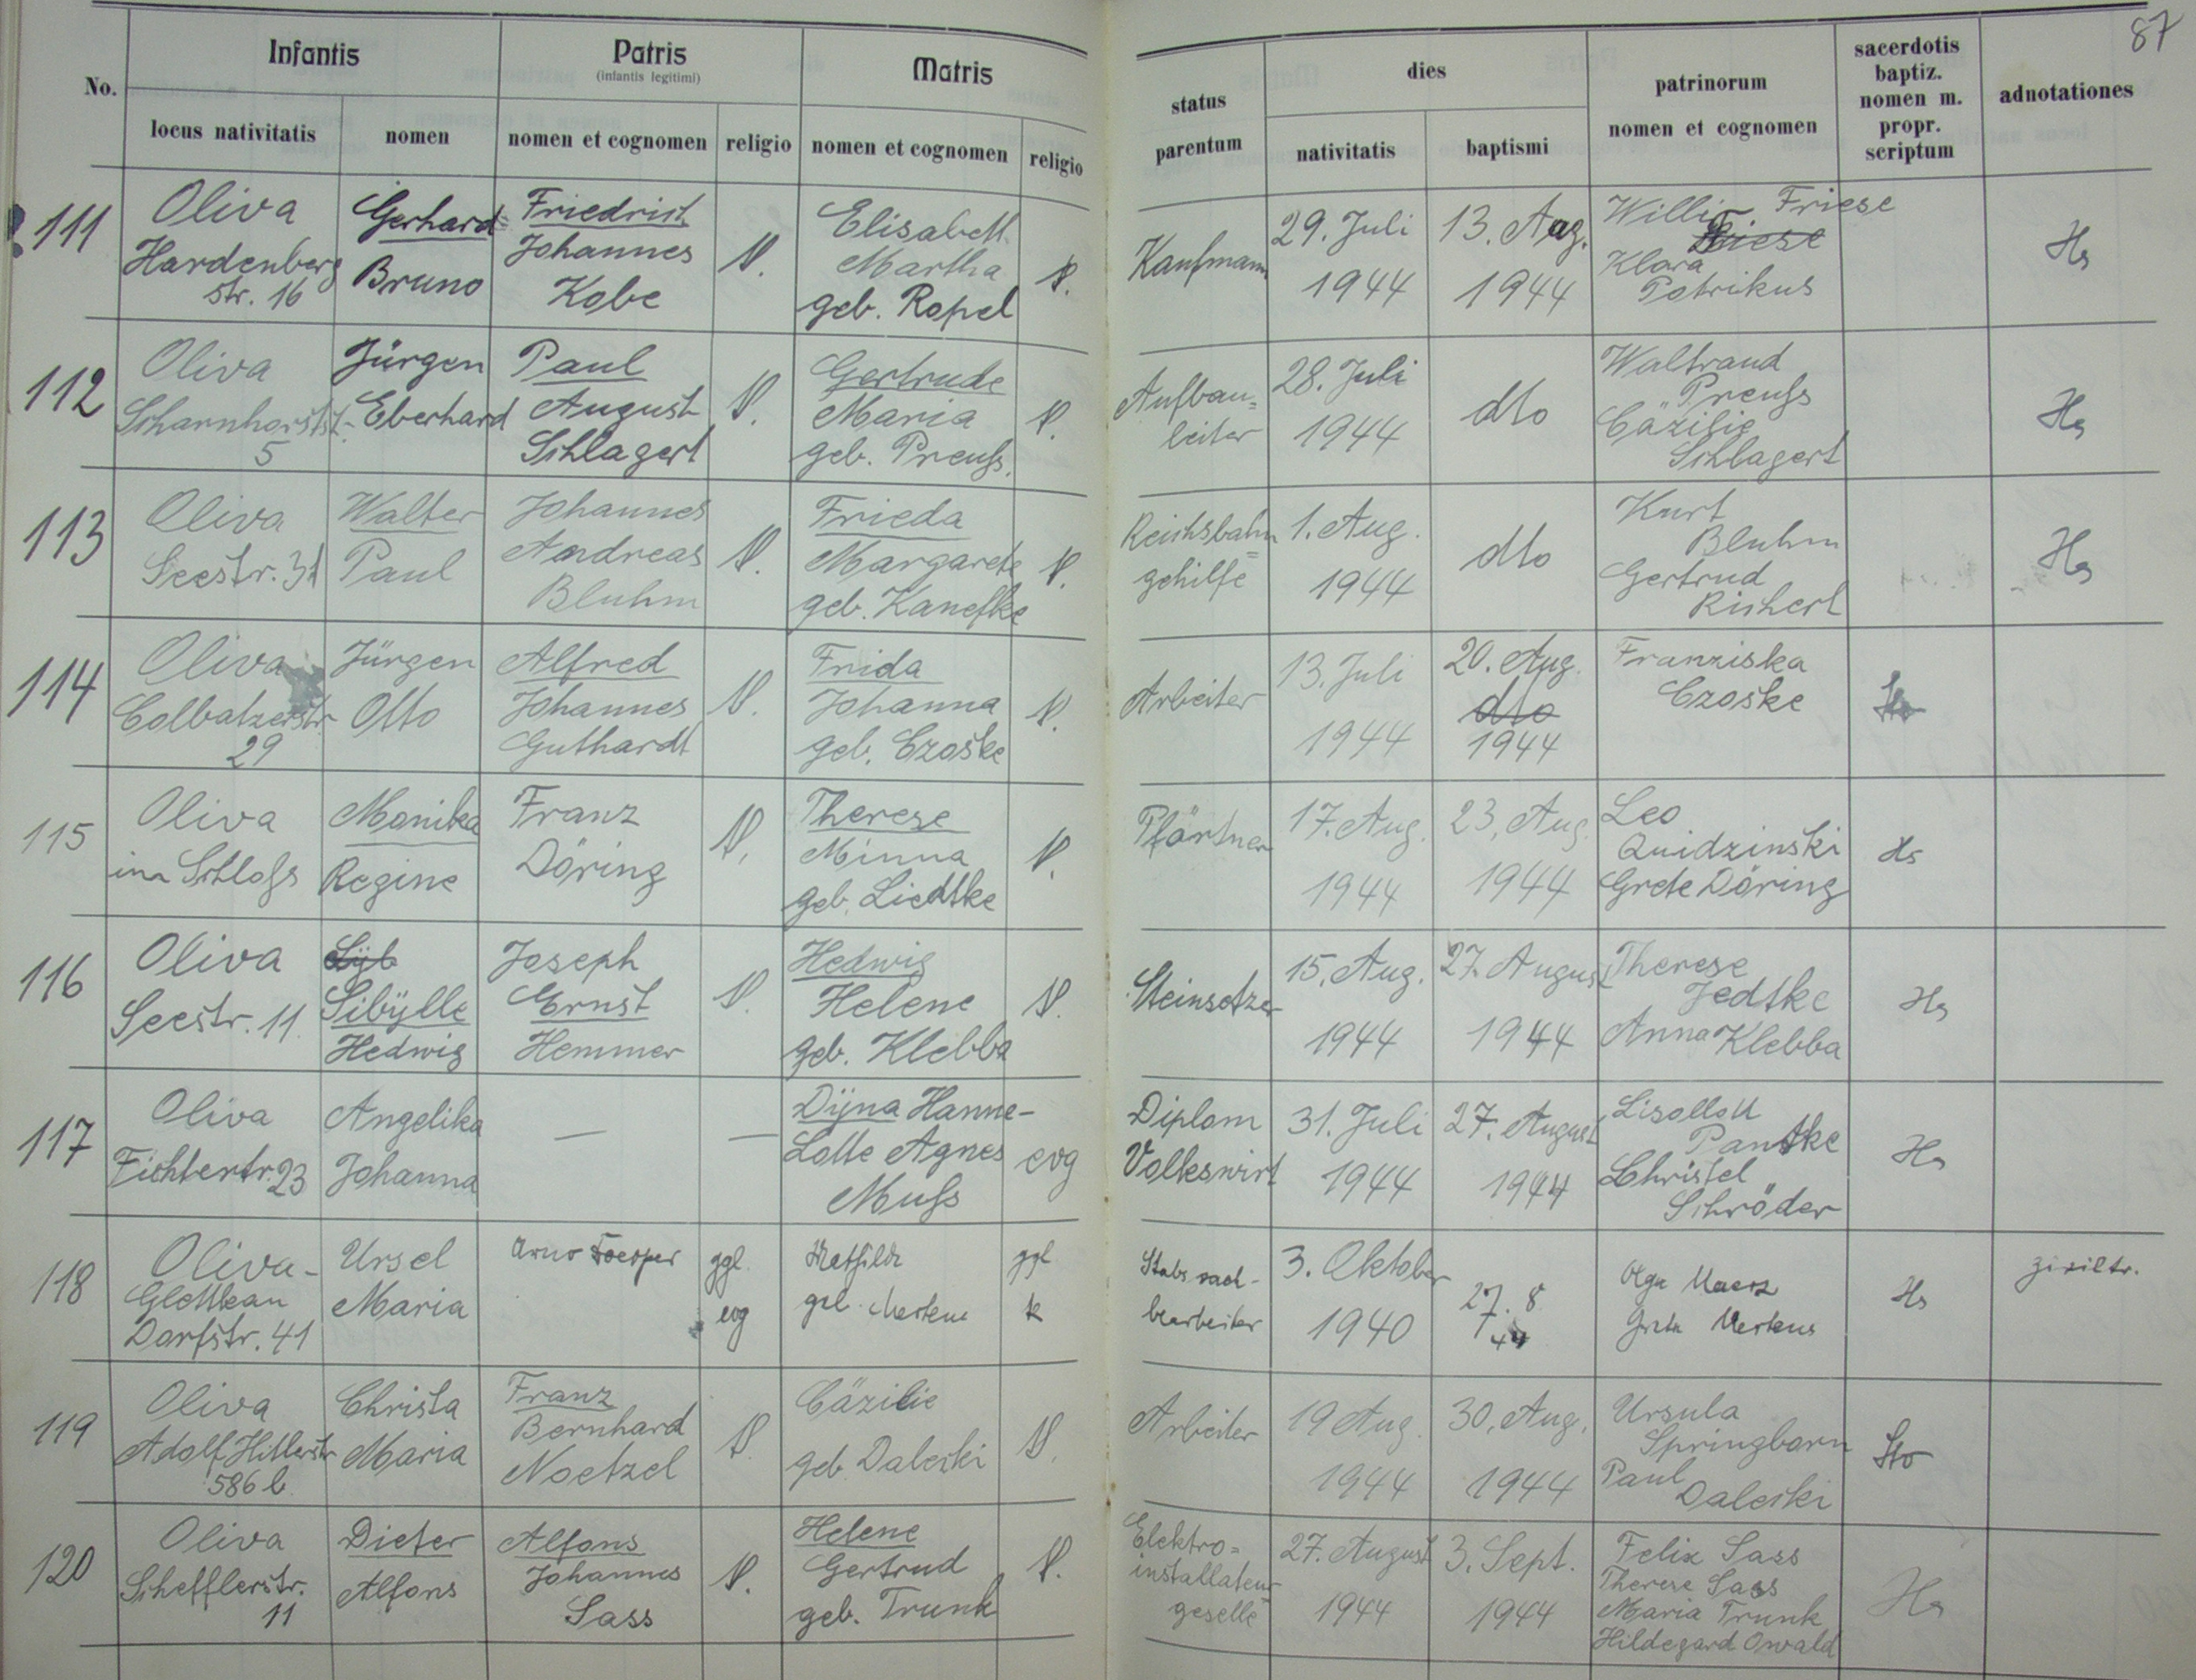 87
Infantis
Patris
(infantis legitimi)
Matris
No.
locus nativitatis
nomen
nomen et cognomen
religio
nomen et cognomen
religio
status
parentum
dies
nativitatis
baptismi
patrinorum
nomen et cognomen
sacerdotis
baptiz.
nomen m.
propr.
scriptum
adnotationes
111
Oliva
Hardenberg
str. 16
Gerhard=
Bruno
Friedrich
Johannes
Kobe
Elisabeth
Martha
geb. Ropel
Kaufmann
29. Juli
1944
13. Aug.
1944
Willi Friese
Klara
Patrikus
Hs
112
Oliva
Scharnhorststr.
5
Jürgen
Eberhard
Paul
August
Schlagert
Gertrude
Maria
geb. Preuß.
Aufbau=
leiter
28. Juli
1944
dto
Waltraud
Preuß
Cäzilie
Schlagert
Hs
113
Oliva
Seestr. 31
Walter
Paul
Johannes
Andreas
Bluhm
Frieda
Margarete
geb. Kanefke
Reichsbahn=
gehilfe
1. Aug.
1944
dto
Kurt
Bluhm
Gertrud
Richert
Hs
114
Oliva
Colbatzerstr
29
Jürgen
Otto
Alfred
Johannes
Guthardt
Frida
Johanna
geb. Czoske
Arbeiter
13. Juli
1944
20. Aug.
dto
1944
Franziska
Czoske
Sto
115
Oliva
im Schloß
Monika
Regine
Franz
Döring
Therese
Minna
geb. Liedtke
Pförtner
17. Aug.
1944
23. Aug.
1944
Leo
Quidzinski
Grete Döring
Hs
116
Oliva
Seestr. 11.
Sibÿlle
Hedwig
Joseph
Ernst
Hemmer
Hedwig
Helene
geb. Klebba
Steinsetzer
15. Aug.
1944
27. August
1944
Therese
Jedtke
Anna Klebba
Hs
117
Oliva
Fichterstr. 23
Angelika
Johanna
—
—
Dÿna Hanne-
Lotte Agnes
Muß
evg
Diplom
Volkswirt
31. Juli
1944
27. August
1944
Lisollott
Pantke
Christel
Schröder
Hs
118
Oliva-
Glettkau
Dorfstr. 41
Ursel
Maria
Arno Toesper
ggl.
evg
Mathilde
geb. Mertens
ggl
k
Stabs sach-
bearbeiter
3. Oktober
1940
27. 8
44
Olga Maerz
Greta Mertens
Hs
ziviltr.
119
Oliva
Adolf Hitlerstr
586 b
Christa
Maria
Franz
Bernhard
Noetzel
Cäzilie
geb Daleski
Arbeiter
19 Aug.
1944
30. Aug.
1944
Ursula
Springborn
Paul
Daleski
Sto
120
Oliva
Schefflerstr.
11
Dieter
Alfons
Alfons
Johannes
Sass
Helene
Gertrud
geb. Trunk
Elektro=
installateur=
geselle
27. August
1944
3. Sept.
1944
Felix Sass
Therese Sass
Maria Trunk
Hildegard Oswald
Hs